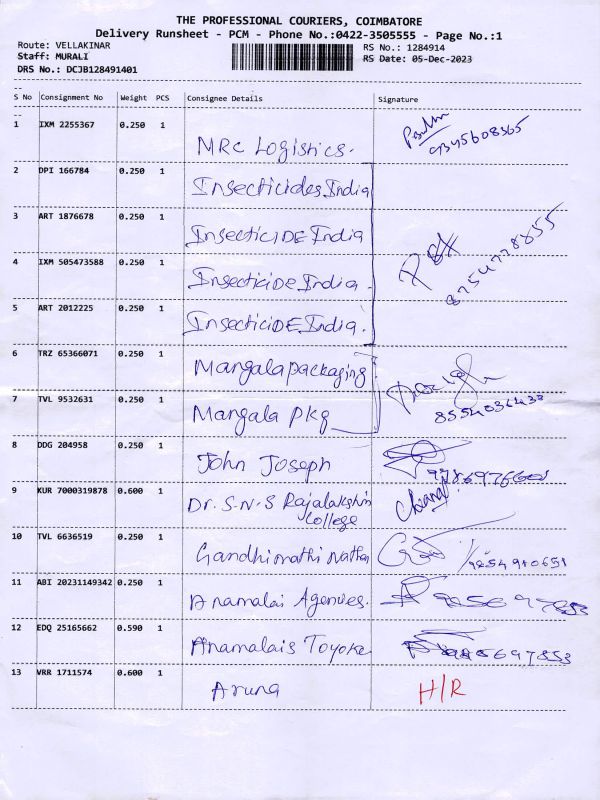 THE PROFESSIONAL COURIERS, COIMBATORE
Delivery Runsheet - PCM - Phone No.:0422-3505555 - Page No.:1
Route: VELLAKINAR RS No.: 1284914
Staff: MURALI RS Date: 05-Dec-2023
DRS No.: DCJB128491401
S No Consignment No Weight PCS Consignee Details Signature
1 IXM 2255367 0.250 1 MRC Logistics. 9345608365
2 DPI 166784 0.250 1 Insecticides India
3 ART 1876678 0.250 1 InsecticiDE India
4 IXM 505473588 0.250 1 InsecticiDE India. 8754778855
5 ART 2012225 0.250 1 InsecticiDE India.
6 TRZ 65366071 0.250 1 Mangala packaging
7 TVL 9532631 0.250 1 Mangala pkg
8 DDG 204958 0.250 1 John Joseph
9 KUR 7000319878 0.600 1 Dr. S.N.S Rajalakshmi
College
10 TVL 6636519 0.250 1 Gandhimathi Nathan
11 ABI 20231149342 0.250 1 Anamalai Agencies.
12 EDQ 25165662 0.590 1 Anamalais Toyota
13 VRR 1711574 0.600 1 Aruna H/R